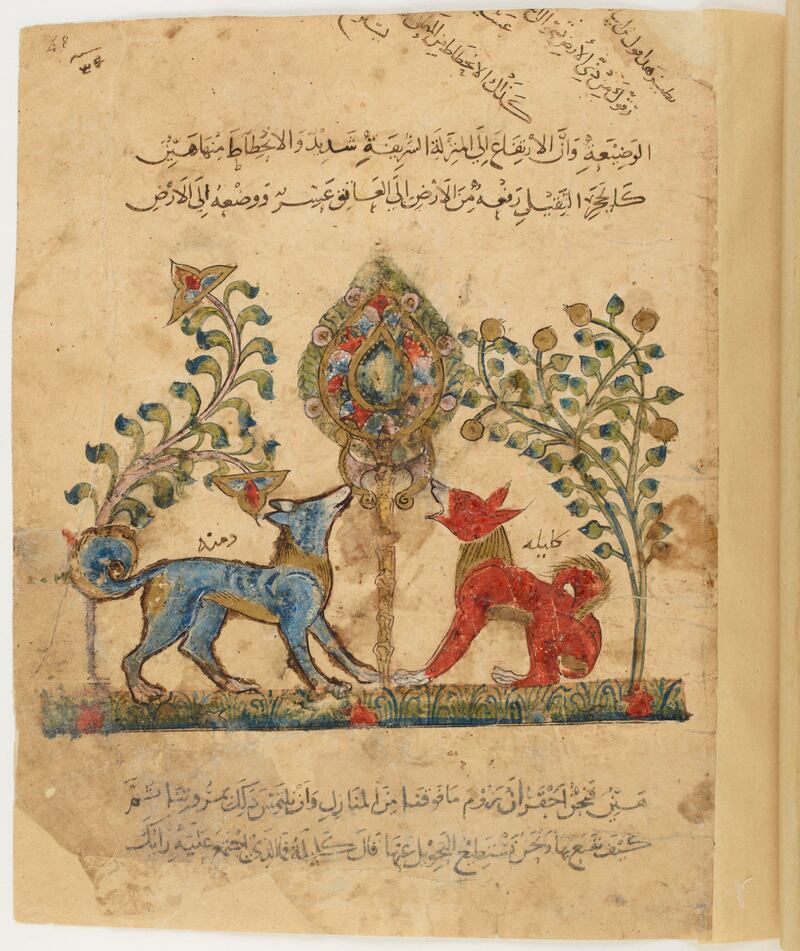 48
٣٤
كذلك الانحطاط من
الوضيعة وانّ الارتفاع إلى المنزلة الشريفة شديد والانحطاط منها هيّن
كالحجر الثقيل رفعه من الأرض إلى العاتق عسر ووضعه إلى الأرض
دمنه
كليله
هيّن فنحن احقّ ان نروم ما فوقنا من المنازل وان نلتمس ذلك بمروتنا ثم
كيف نقنع بها ونحن نستطيع التحويل عنها قال كليلة فما الذي اجتمع عليه رايك